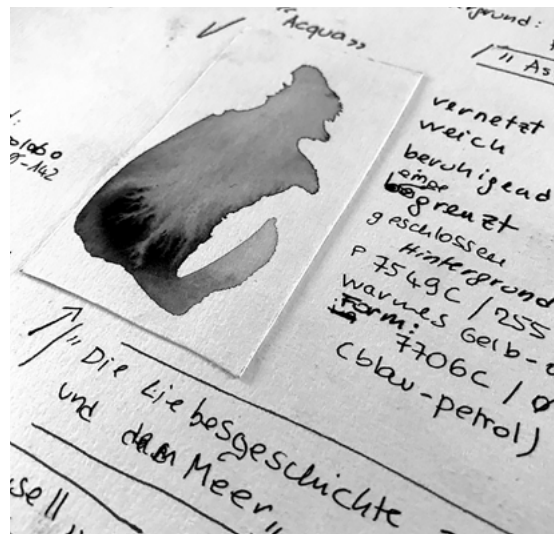 "Acqua"
"As
vernetzt
weich
beruhigend
einge
grenzt
geschlossen
Hintergrund
P 7549C / 255
warmes Gelb-
Form:
7706C / 0
(blau-petrol)
"Die Liebesgeschichte
und dem Meer"